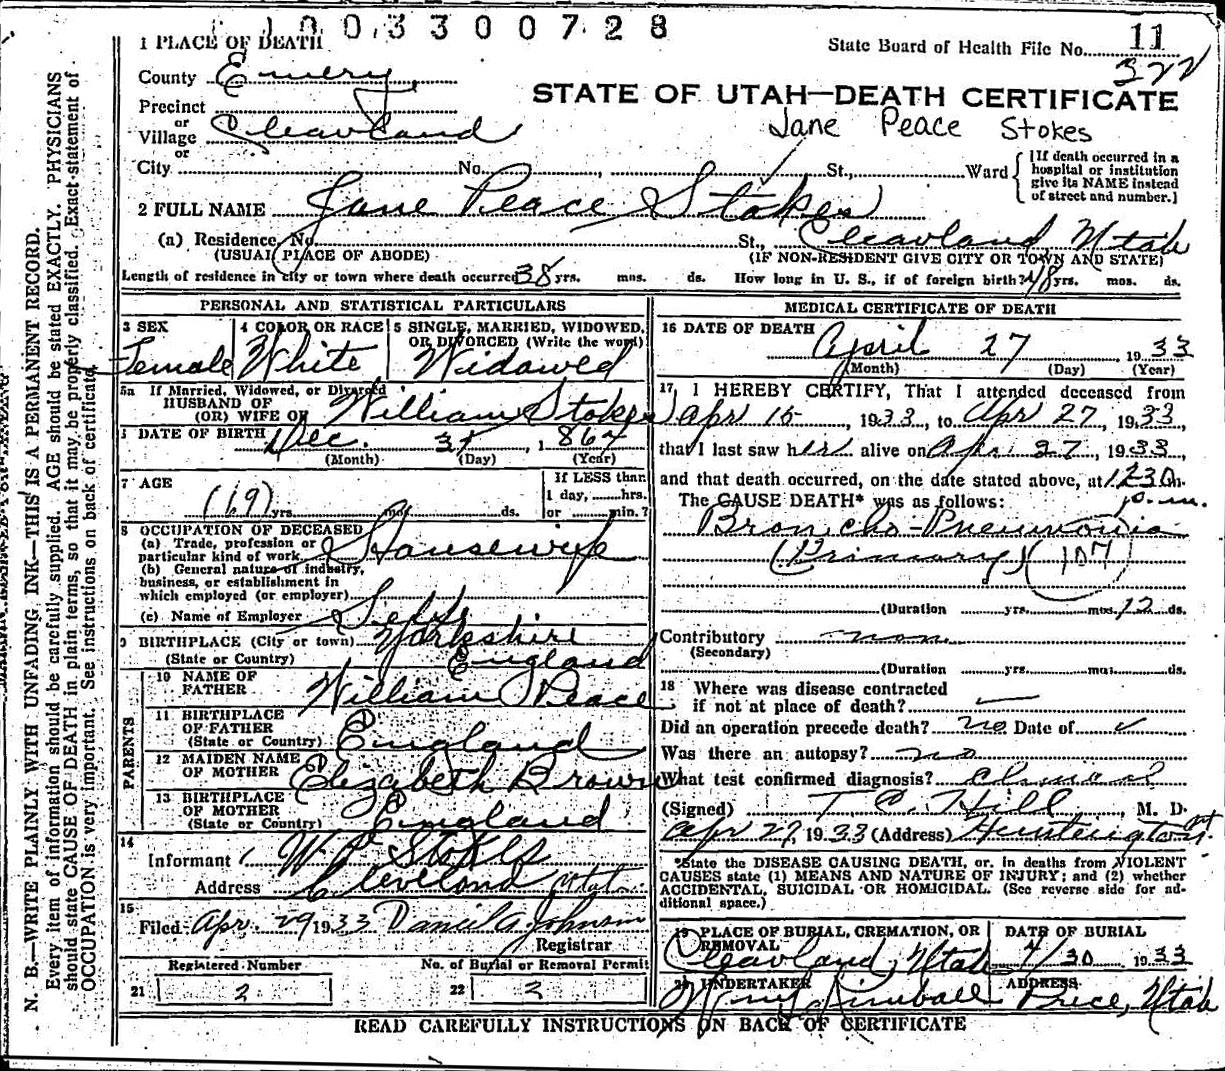 1003300728
1 PLACE OF DEATH
State Board of Health File No. 11
322
County Emery
STATE OF UTAH—DEATH CERTIFICATE
Precinct
or
Village Cleavland
Jane Peace Stokes
or
City No. St., Ward
[If death occurred in a hospital or institution give its NAME instead of street and number.]
2 FULL NAME Jane Peace Stokes
(a) Residence, No. St., Cleavland Utah
(USUAL PLACE OF ABODE) (IF NON-RESIDENT GIVE CITY OR TOWN AND STATE)
Length of residence in city or town where death occurred 38 yrs. mos. ds. How long in U. S., if of foreign birth? 48 yrs. mos. ds.
PERSONAL AND STATISTICAL PARTICULARS
3 SEX Female
4 COLOR OR RACE White
5 SINGLE, MARRIED, WIDOWED, OR DIVORCED (Write the word) Widowed
5a If Married, Widowed, or Divorced
HUSBAND OF
(OR) WIFE OF William Stokes
DATE OF BIRTH Dec. 31, 1867
(Month) (Day) (Year)
7 AGE (69) yrs. mos. ds.
If LESS than
1 day, hrs.
or min.?
8 OCCUPATION OF DECEASED
(a) Trade, profession or
particular kind of work Housewife
(b) General nature of industry,
business, or establishment in
which employed (or employer)
(c) Name of Employer Self
9 BIRTHPLACE (City or town) Yorkshire
(State or Country) England
PARENTS
10 NAME OF
FATHER William Peace
11 BIRTHPLACE
OF FATHER
(State or Country) England
12 MAIDEN NAME
OF MOTHER Elizabeth Brown
13 BIRTHPLACE
OF MOTHER
(State or Country) England
14
Informant W P Stokes
Address Cleveland Utah
15
Filed Apr. 29 1933 Daniel A Johnson
Registrar
Registered Number No. of Burial or Removal Permit
21 2 22 2
MEDICAL CERTIFICATE OF DEATH
16 DATE OF DEATH April 27 1933
(Month) (Day) (Year)
17 I HEREBY CERTIFY, That I attended deceased from
Apr 15, 1933, to Apr 27, 1933,
that I last saw her alive on Apr. 27, 1933,
and that death occurred, on the date stated above, at 1230 m.
p.m.
The CAUSE DEATH* was as follows:
Broncho-Pneumonia
(Primary) (107)
(Duration yrs. mos. 12 ds.
Contributory non
(Secondary)
(Duration yrs. mos. ds.
18 Where was disease contracted
if not at place of death?
Did an operation precede death? no Date of
Was there an autopsy? no
What test confirmed diagnosis? clinical
(Signed) T C. Hill, M. D.
Apr 27, 1933 (Address) Huntington Ut.
*State the DISEASE CAUSING DEATH, or, in deaths from VIOLENT
CAUSES state (1) MEANS AND NATURE OF INJURY; and (2) whether
ACCIDENTAL, SUICIDAL OR HOMICIDAL. (See reverse side for ad-
ditional space.)
19 PLACE OF BURIAL, CREMATION, OR REMOVAL Cleavland, Utah
DATE OF BURIAL 4/30 1933
UNDERTAKER Kimball
ADDRESS Price, Utah
READ CAREFULLY INSTRUCTIONS ON BACK OF CERTIFICATE
N. B.—WRITE PLAINLY WITH UNFADING INK—THIS IS A PERMANENT RECORD.
Every item of information should be carefully supplied. AGE should be stated EXACTLY. PHYSICIANS
should state CAUSE OF DEATH in plain terms, so that it may be properly classified. Exact statement of
OCCUPATION is very important. See instructions on back of certificate.